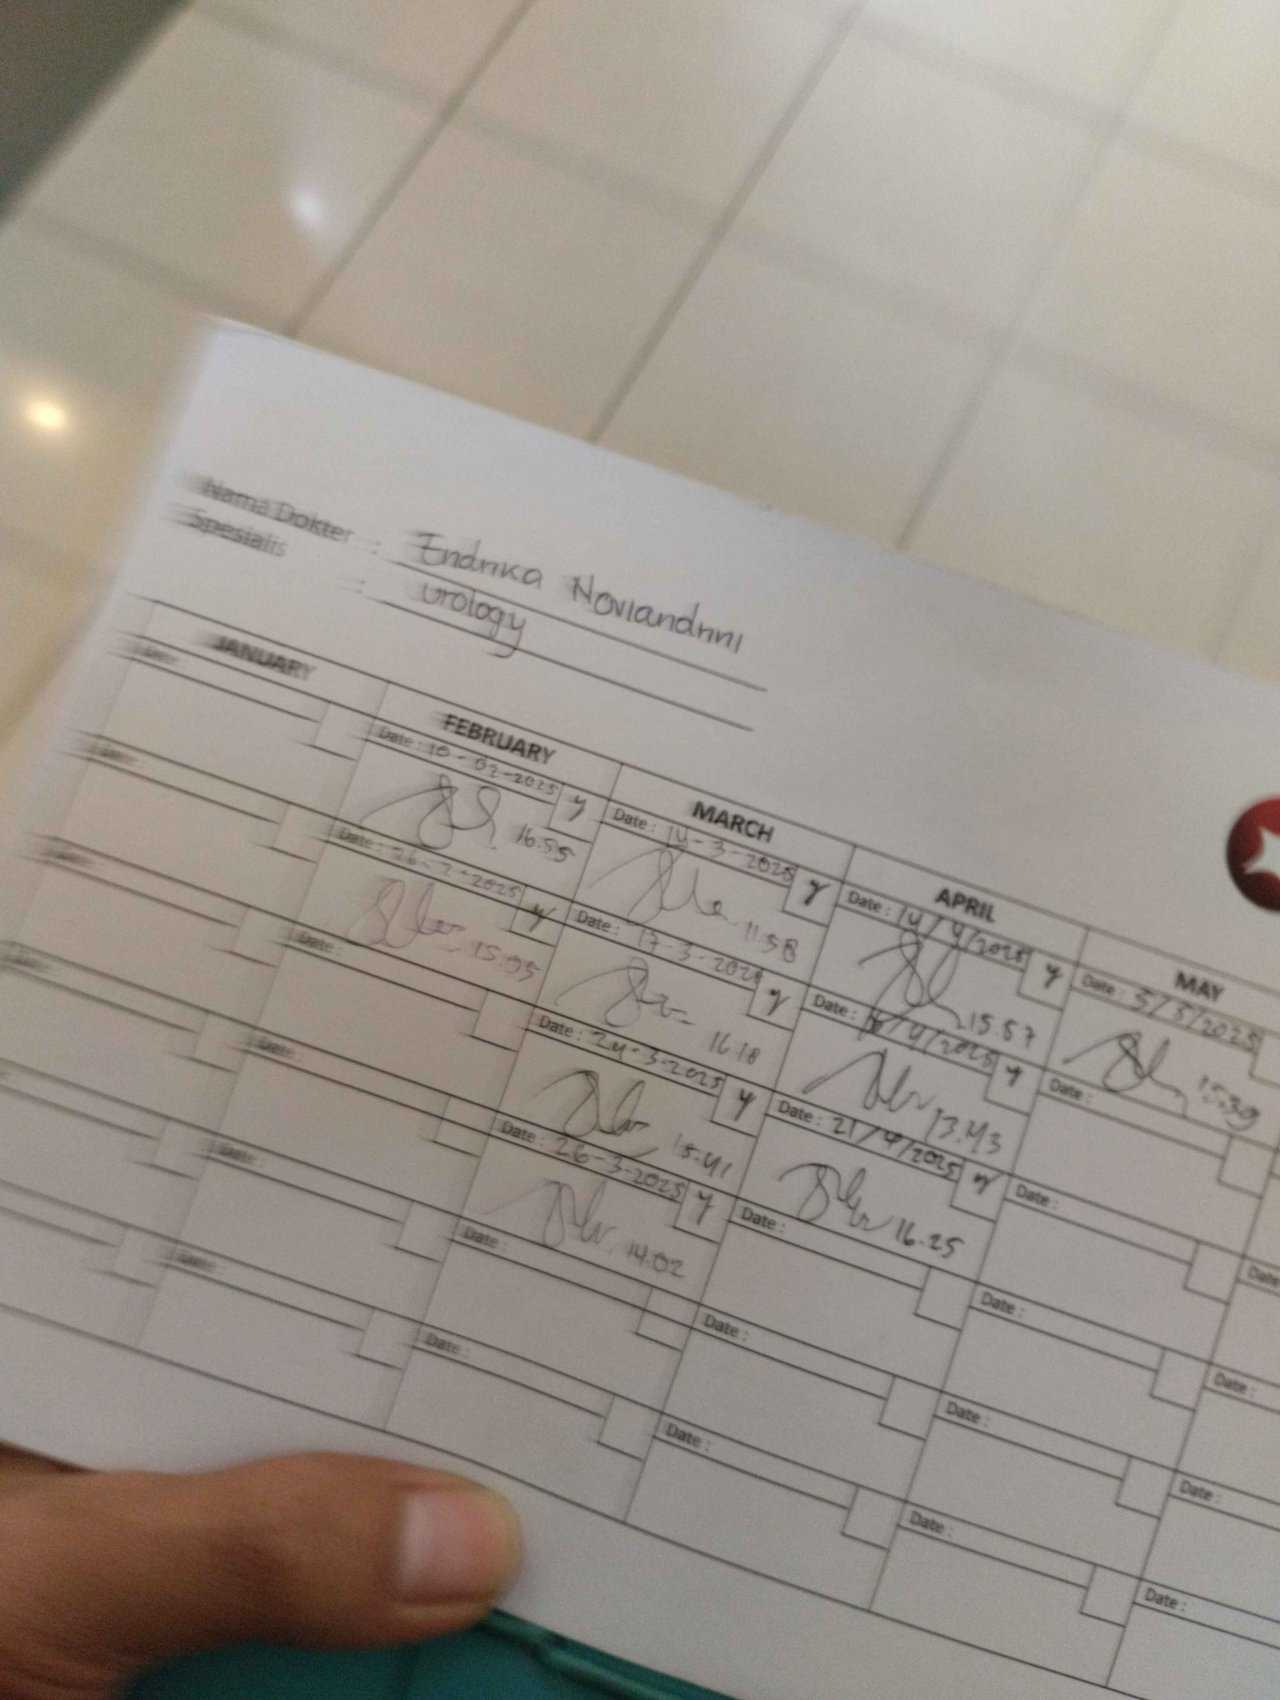 Nama Dokter : Endrika Noviandrini
Spesialis : Urology
JANUARY FEBRUARY MARCH APRIL MAY
Date: Date: 10-02-2025 y Date: 14-3-2025 y Date: 14/4/2025 y Date: 5/5/2025
16.55 11.58 15.57 15.39
Date: Date: 26-2-2025 y Date: 17-3-2025 y Date: /4/2025 y Date:
15.05 16.18 13.43
Date: Date: Date: 24-3-2025 y Date: 21/4/2025 y Date:
15.41 16.25
Date: Date: Date: 26-3-2025 y Date: Date: Date:
14.02
Date: Date: Date: Date: Date:
Date: Date: Date: Date: Date:
Date: